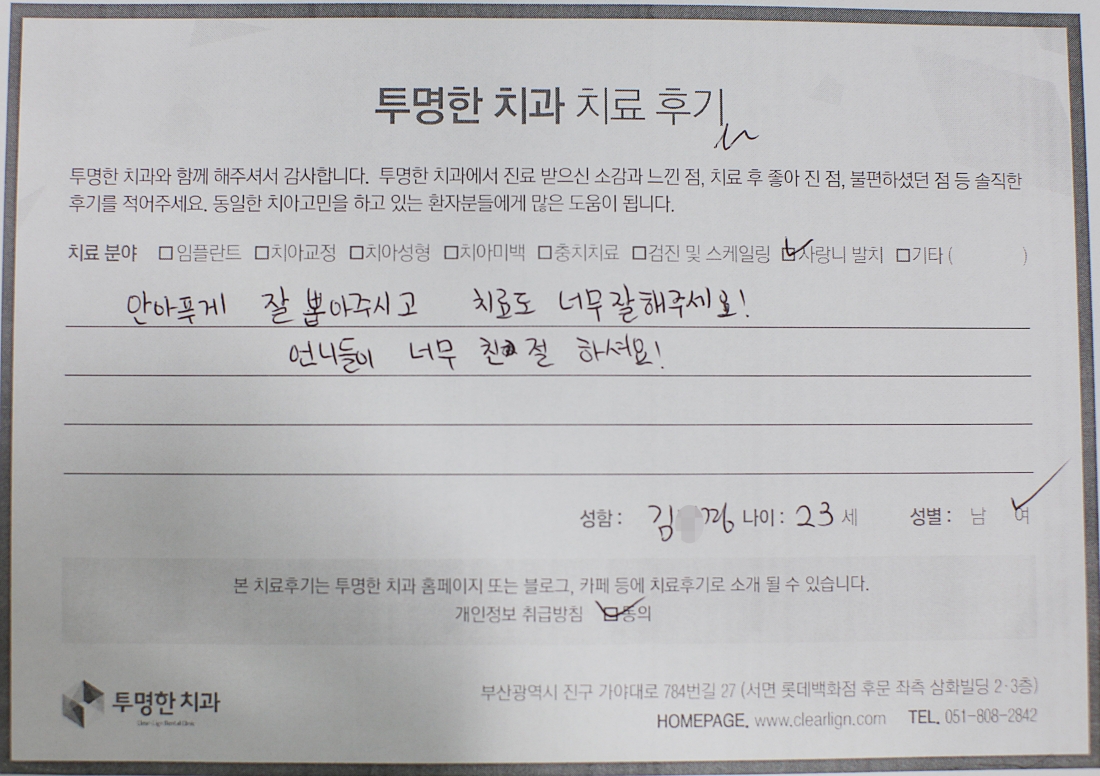 투명한 치과 치료 후기
투명한 치과와 함께 해주셔서 감사합니다. 투명한 치과에서 진료 받으신 소감과 느낀 점, 치료 후 좋아 진 점, 불편하셨던 점 등 솔직한
후기를 적어주세요. 동일한 치아고민을 하고 있는 환자분들에게 많은 도움이 됩니다.
치료 분야 □임플란트 □치아교정 □치아성형 □치아미백 □충치치료 □검진 및 스케일링 ☑사랑니 발치 □기타 ( )
안아푸게 잘 뽑아주시고 치료도 너무잘해주세요!
언니들이 너무 친절 하셔요!
성함 : 김 나이 : 23 세 성별 : 남 여
본 치료후기는 투명한 치과 홈페이지 또는 블로그, 카페 등에 치료후기로 소개 될 수 있습니다.
개인정보 취급방침 ☑동의
투명한 치과
부산광역시 진구 가야대로 784번길 27 (서면 롯데백화점 후문 좌측 삼화빌딩 2·3층)
HOMEPAGE. www.clearlign.com TEL. 051-808-2842